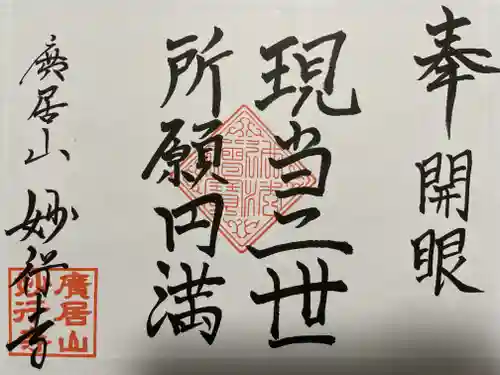 奉開眼
現当二世
所願円満
廣居山 妙行寺
廣居山
妙行寺